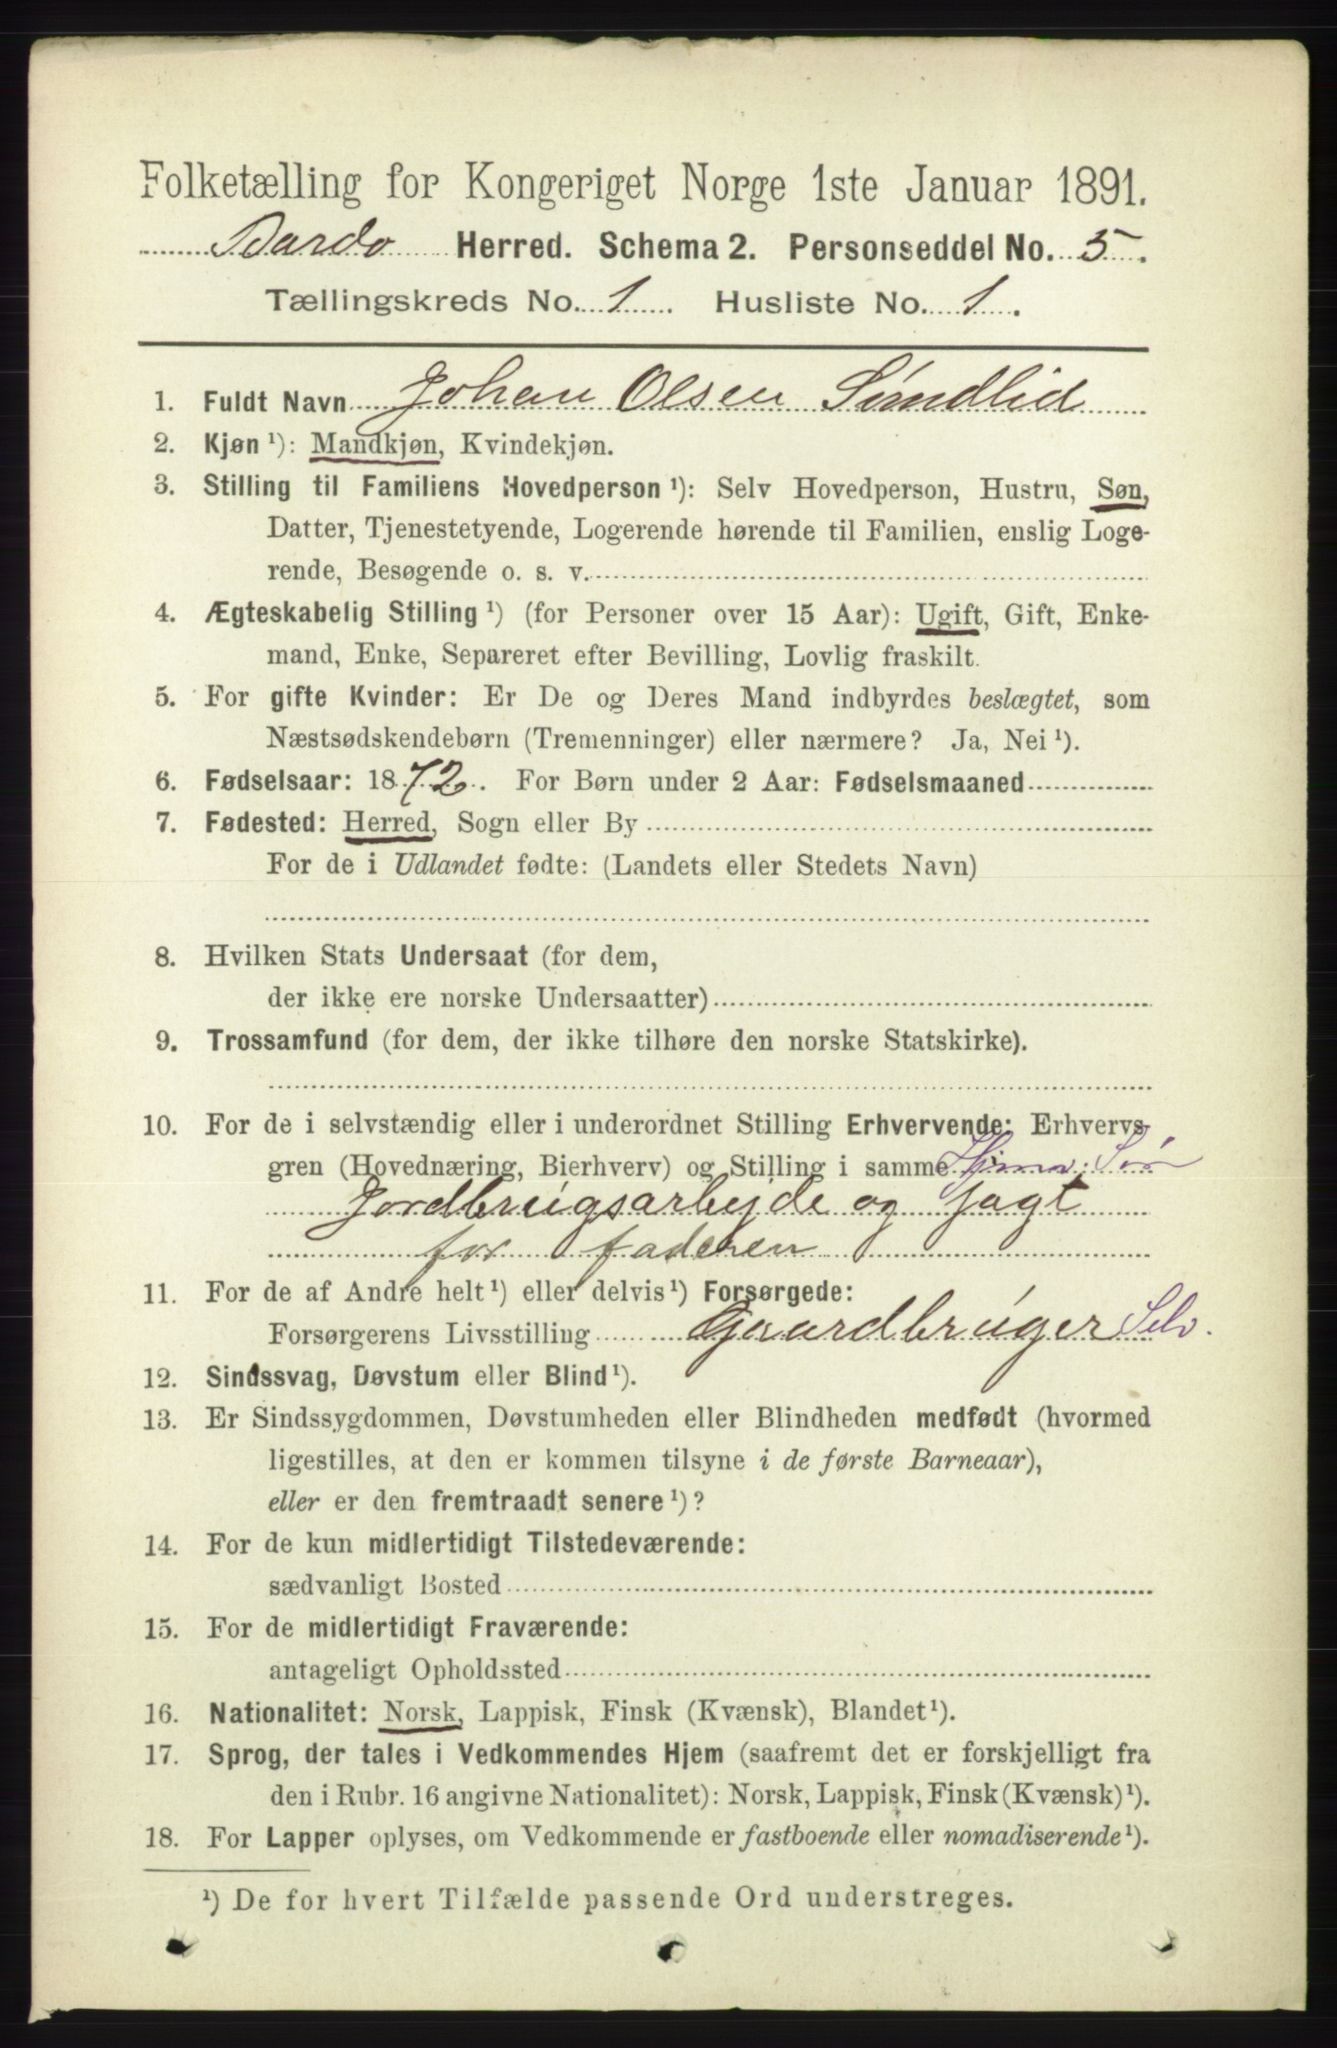 Folketælling for Kongeriget Norge 1ste Januar 1891.
Bardo Herred. Schema 2. Personseddel No. 5.
Tællingskreds No. 1. Husliste No. 1.
1. Fuldt Navn Johan Olsen Sundlid
2. Kjøn ¹): Mandkjøn, Kvindekjøn.
3. Stilling til Familiens Hovedperson ¹): Selv Hovedperson, Hustru, Søn,
Datter, Tjenestetyende, Logerende hørende til Familien, enslig Loge-
rende, Besøgende o. s. v.
4. Ægteskabelig Stilling ¹) (for Personer over 15 Aar): Ugift, Gift, Enke-
mand, Enke, Separeret efter Bevilling, Lovlig fraskilt.
5. For gifte Kvinder: Er De og Deres Mand indbyrdes beslægtet, som
Næstsødskendebørn (Tremenninger) eller nærmere? Ja, Nei ¹).
6. Fødselsaar: 1872. For Børn under 2 Aar: Fødselsmaaned
7. Fødested: Herred, Sogn eller By
For de i Udlandet fødte: (Landets eller Stedets Navn)
8. Hvilken Stats Undersaat (for dem,
der ikke ere norske Undersaatter)
9. Trossamfund (for dem, der ikke tilhøre den norske Statskirke).
10. For de i selvstændig eller i underordnet Stilling Erhvervende: Erhvervs-
gren (Hovednæring, Bierhverv) og Stilling i samme
Jordbrugsarbejde og Jagt
for faderen
11. For de af Andre helt ¹) eller delvis ¹) Forsørgede:
Forsørgerens Livsstilling Gaardbruger Selv.
12. Sindssvag, Døvstum eller Blind ¹).
13. Er Sindssygdommen, Døvstumheden eller Blindheden medfødt (hvormed
ligestilles, at den er kommen tilsyne i de første Barneaar),
eller er den fremtraadt senere ¹)?
14. For de kun midlertidigt Tilstedeværende:
sædvanligt Bosted
15. For de midlertidigt Fraværende:
antageligt Opholdssted
16. Nationalitet: Norsk, Lappisk, Finsk (Kvænsk), Blandet ¹).
17. Sprog, der tales i Vedkommendes Hjem (saafremt det er forskjelligt fra
den i Rubr. 16 angivne Nationalitet): Norsk, Lappisk, Finsk (Kvænsk) ¹).
18. For Lapper oplyses, om Vedkommende er fastboende eller nomadiserende ¹).
¹) De for hvert Tilfælde passende Ord understreges.